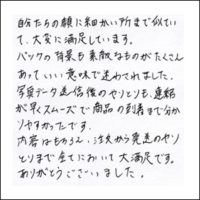 自分たちの顔に細かい所まで似てい
て、大変に満足しています。
バックの背景も素敵なものがたくさん
あっていい意味で迷わされました。
写真データ送信後のやりとりも、連絡
が早くスムーズで商品の到着まで分か
りやすかったです。
内容はもちろん、注文から発送のやり
とりまで全てにおいて大満足です。
ありがとうございました。